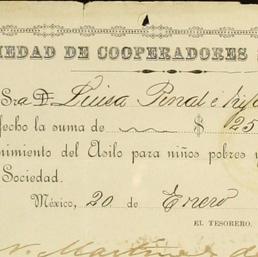 IEDAD DE COOPERADORES
Sra D. Luisa Penal é hija
fecho la suma de $ 25
nimiento del Asilo para niños pobres y
Sociedad.
México, 20 de Enero
EL TESORERO,
N. Martinez d